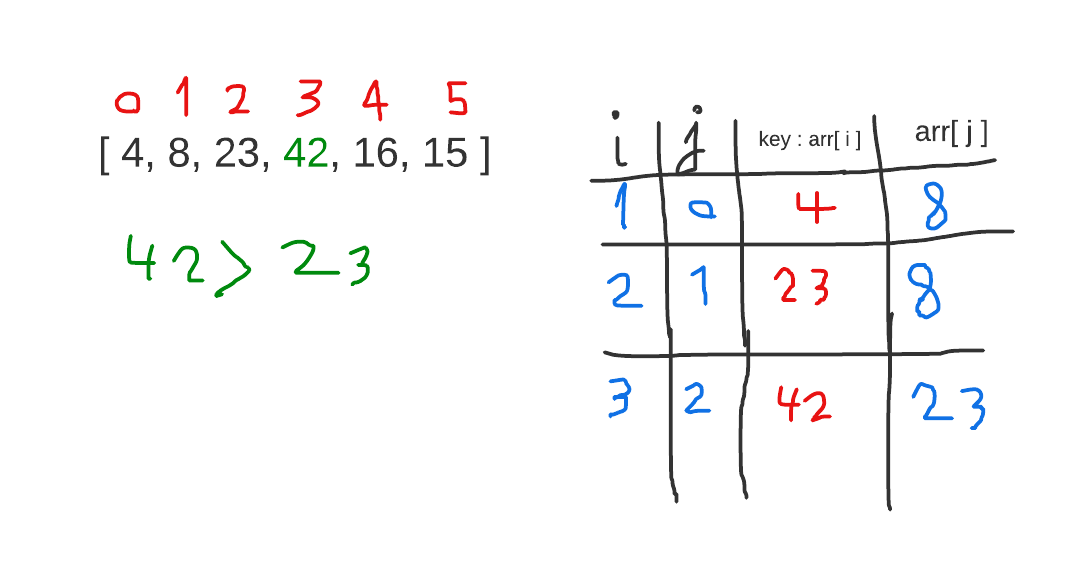 0 1 2 3 4 5
[ 4, 8, 23, 42, 16, 15 ]
42 > 23
i j key : arr[ i ] arr[ j ]
1 0 4 8
2 1 23 8
3 2 42 23